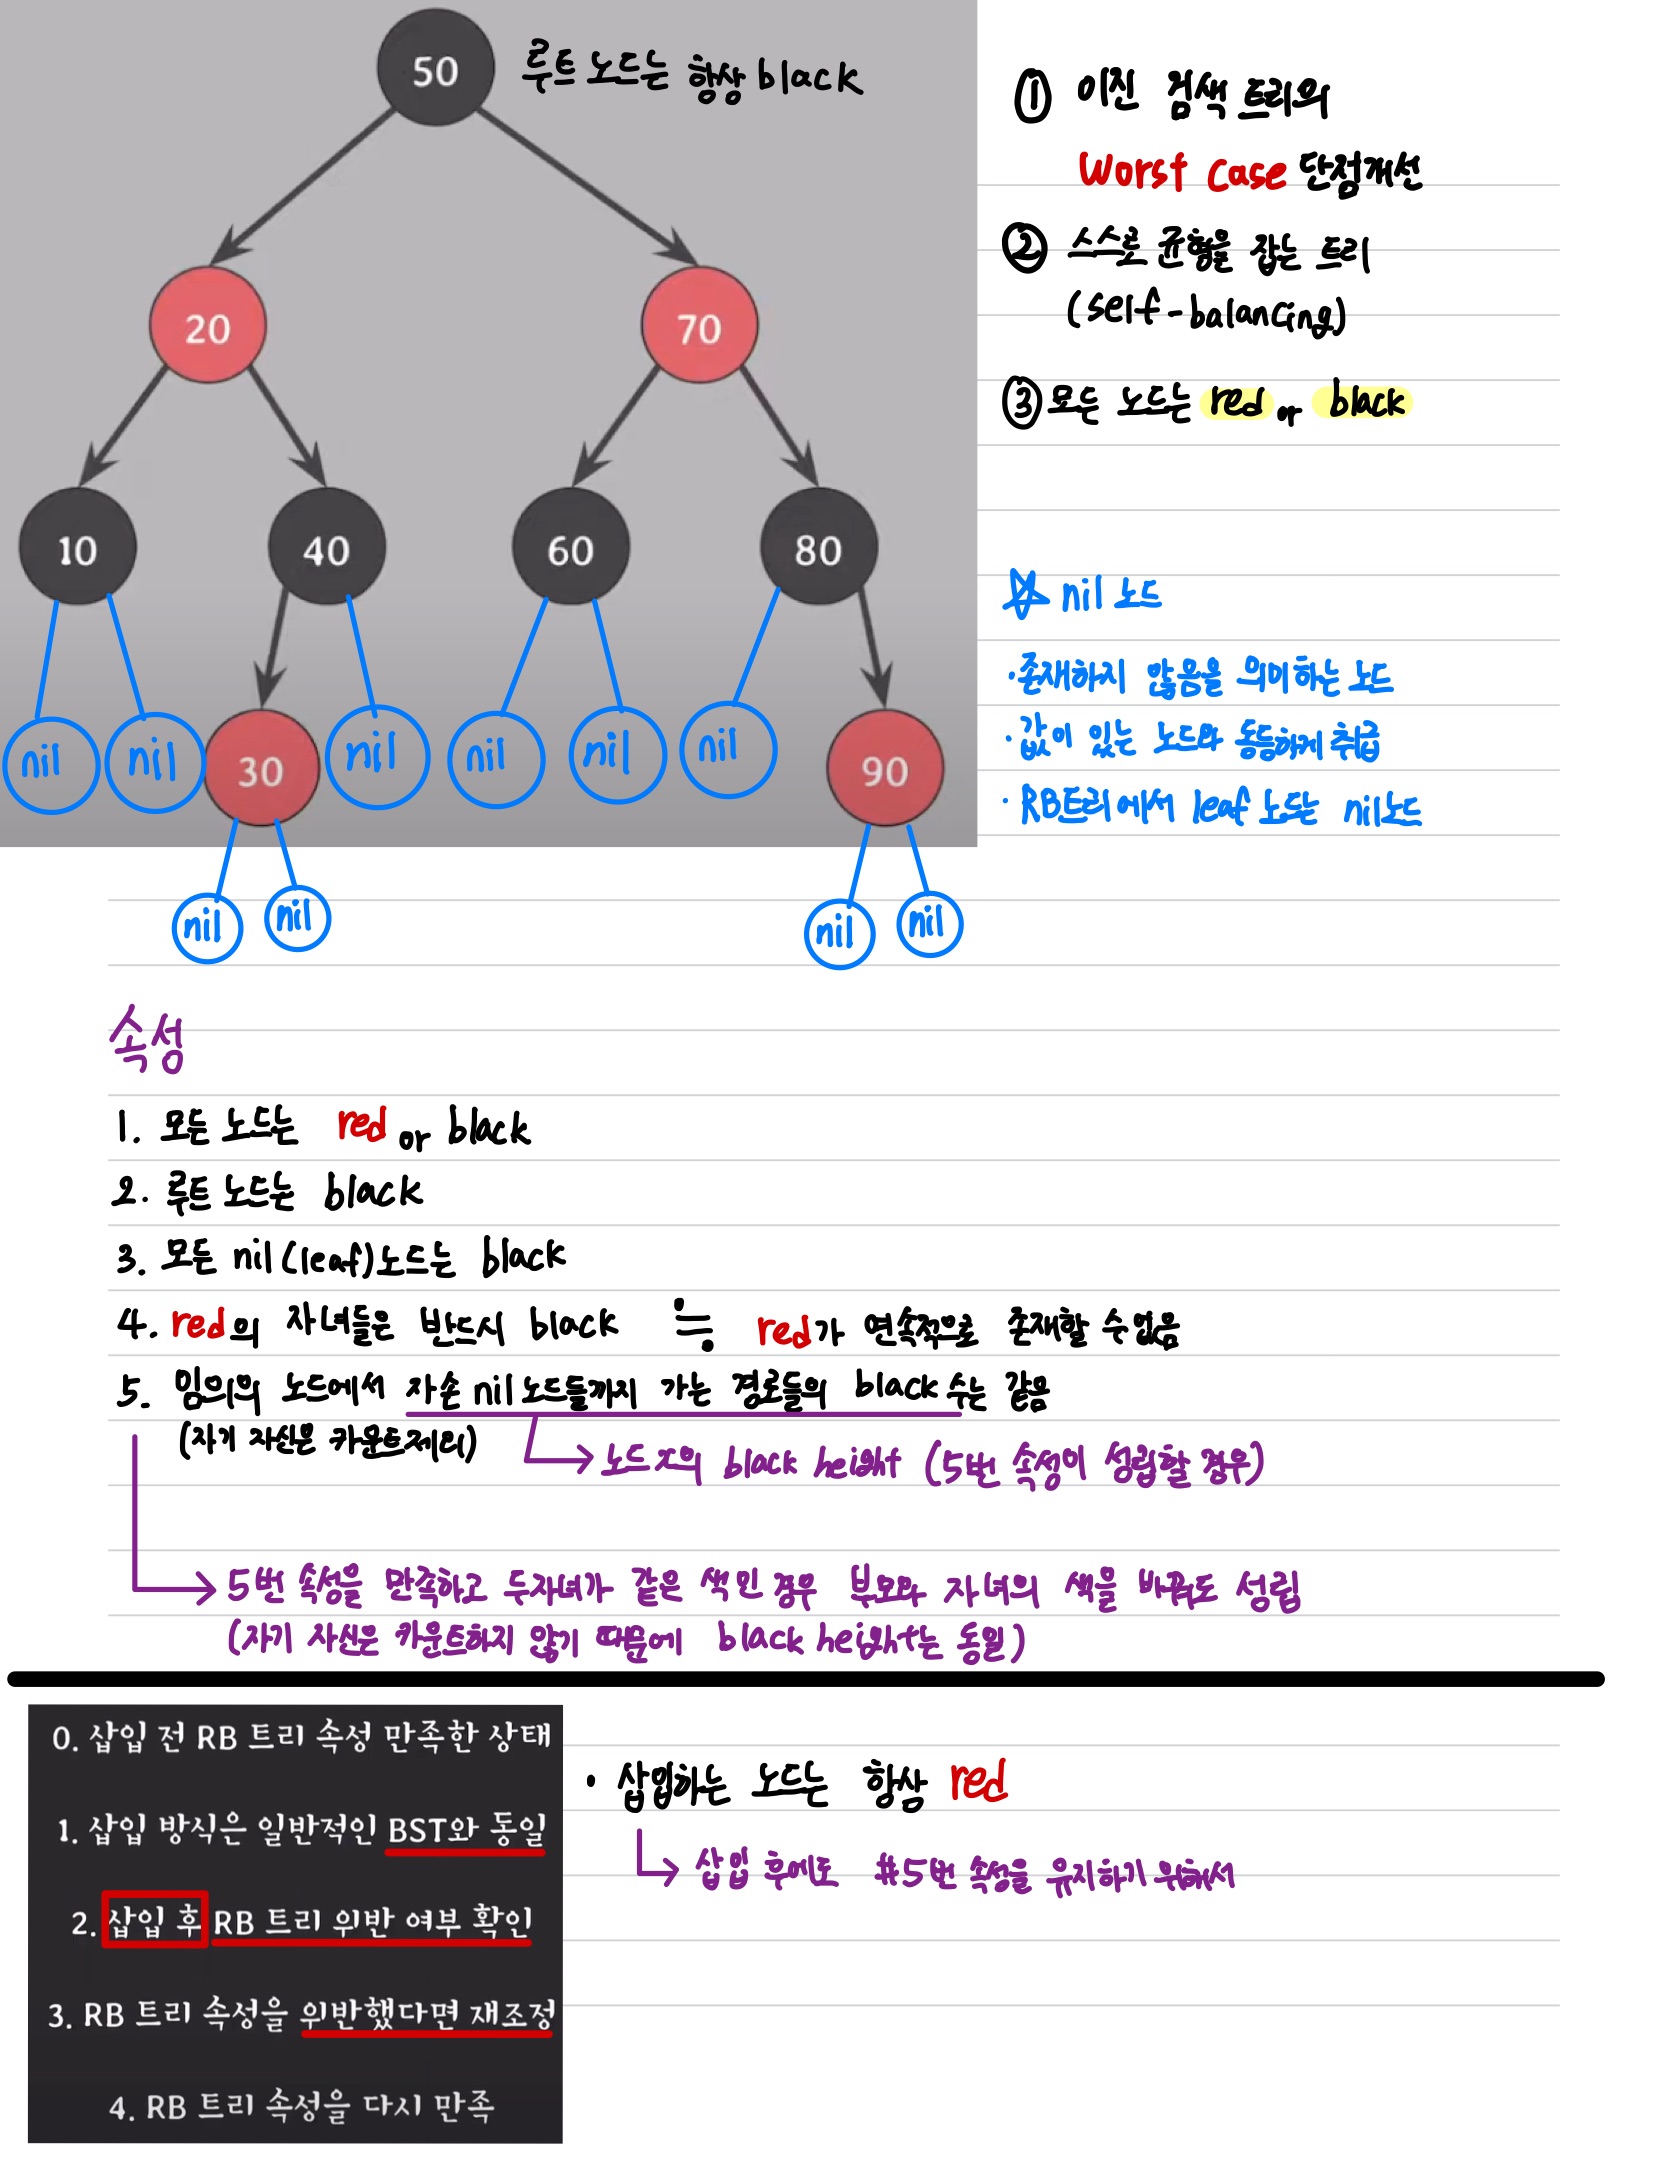 50 루트 노드는 항상 black
20 70
10 40 60 80
nil nil 30 nil nil nil nil 90
nil nil nil nil
① 이진 검색 트리의
Worst Case 단점개선
② 스스로 균형을 잡는 트리
(self-balancing)
③ 모든 노드는 red or black
☆ nil 노드
· 존재하지 않음을 의미하는 노드
· 값이 있는 노드와 동등하게 취급
· RB트리에서 leaf 노드는 nil노드
속성
1. 모든 노드는 red or black
2. 루트 노드는 black
3. 모든 nil(leaf)노드는 black
4. red의 자녀들은 반드시 black ≒ red가 연속적으로 존재할 수 없음
5. 임의의 노드에서 자손 nil노드들까지 가는 경로들의 black 수는 같음
(자기 자신은 카운트제외)
노드 x의 black height (5번 속성이 성립할 경우)
5번 속성을 만족하고 두자녀가 같은 색인 경우 부모와 자녀의 색을 바꿔도 성립
(자기 자신은 카운트하지 않기 때문에 black height는 동일)
0. 삽입 전 RB 트리 속성 만족한 상태
1. 삽입 방식은 일반적인 BST와 동일
2. 삽입 후 RB 트리 위반 여부 확인
3. RB 트리 속성을 위반했다면 재조정
4. RB 트리 속성을 다시 만족
· 삽입하는 노드는 항상 red
삽입 후에도 #5번 속성을 유지하기 위해서